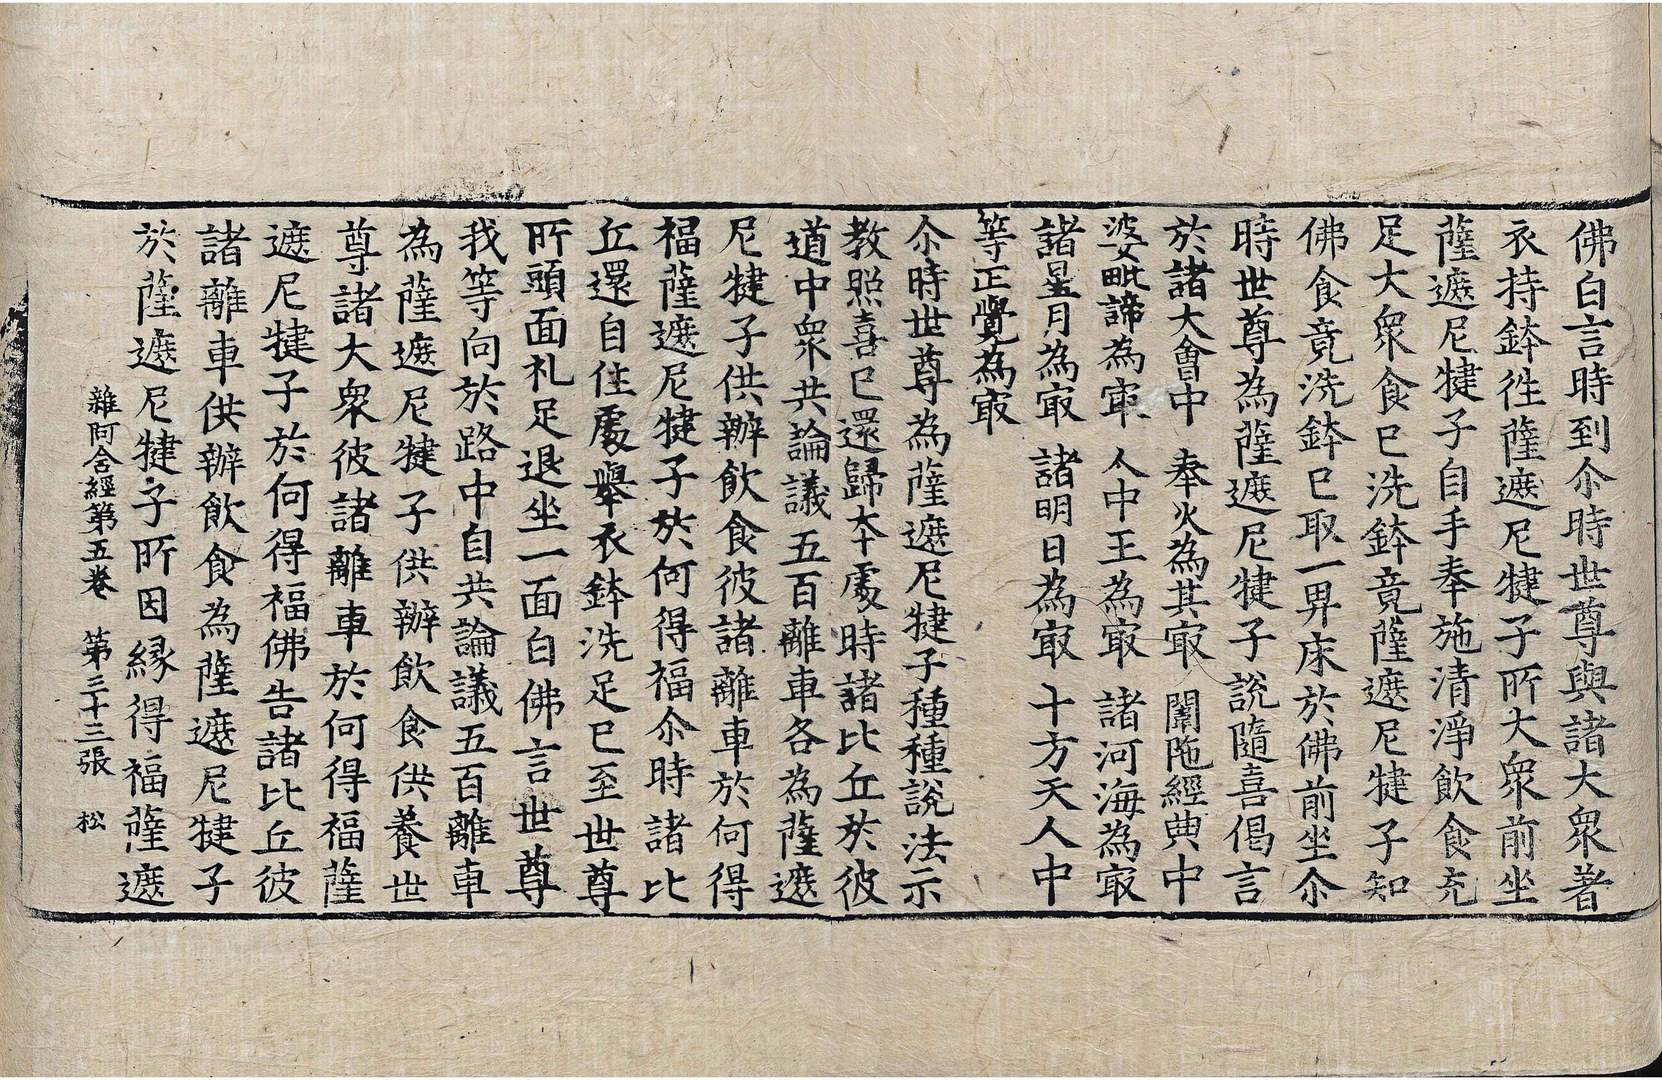 佛白言時到尒時世尊與諸大衆著
衣持鉢徃薩遮尼犍子所大衆前坐
薩遮尼犍子自手奉施清淨飮食充
足大衆食已洗鉢竟薩遮尼犍子知
佛食竟洗鉢已取一卑床於佛前坐尒
時世尊為薩遮尼犍子說隨喜偈言
於諸大會中　奉火為其冣　闡陁經典中
婆毗諦為冣　人中王為冣　諸河海為冣
諸星月為冣　諸明日為冣　十方天人中
等正覺為冣
尒時世尊為薩遮尼犍子種種說法示
教照喜已還歸本處時諸比丘於彼
道中衆共論議五百離車各為薩遮
尼犍子供辦飮食彼諸離車於何得
福薩遮尼犍子於何得福尒時諸比
丘還自住處擧衣鉢洗足已至世尊
所頭面礼足退坐一面白佛言世尊
我等向於路中自共論議五百離車
為薩遮尼犍子供辦飮食供養世
尊諸大衆彼諸離車於何得福薩
遮尼犍子於何得福佛告諸比丘彼
諸離車供辦飮食為薩遮尼犍子
於薩遮尼犍子所因緣得福薩遮
雜阿含經第五卷　第三十三張　松